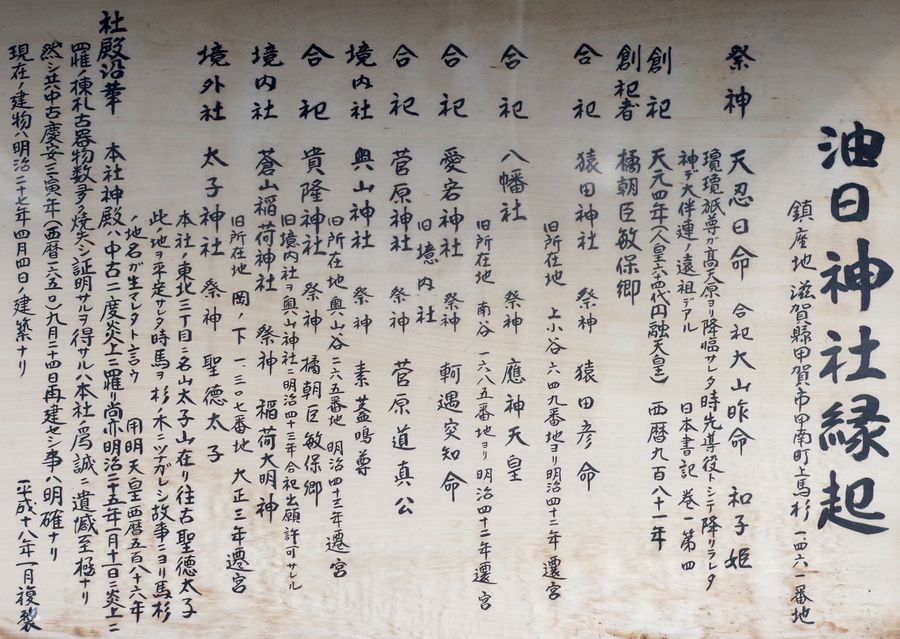 油日神社縁起
鎮座地 滋賀縣甲賀市甲南町上馬杉一四六一番地
祭神 天忍日命 合祀大山咋命 和子姫
瓊瓊杵尊が髙天原ヨリ降臨サレタ時先導役トシテ降リラレタ
神デ大伴連ノ遠祖デアル 日本書記 巻一第四
創祀 天元四年(人皇六十四代円融天皇) 西暦九百八十一年
創祀者 橘朝臣敏保卿
合祀 猿田神社 祭神 猿田彦命
旧所在地 上小谷 六四九番地ヨリ明治四十二年 遷宮
合祀 八幡社 祭神 應神天皇
旧所在地 南谷 一六八五番地ヨリ 明治四十二年 遷宮
合祀 愛宕神社 祭神 軻遇突知命
旧境内社
合祀 菅原神社 祭神 菅原道真公
境内社 奥山神社 祭神 素盞鳴尊
旧所在地 奥山谷二六五番地 明治四十三年 遷宮
合祀 貴隆神社 祭神 橘朝臣敏保卿
旧境内社ヲ奥山神社ニ明治四十三年合祀出願許可サレル
境内社 蒼山稲荷神社 祭神 稲荷大明神
旧所在地 岡ノ下 一、三〇七番地 大正三年遷宮
境外社 太子神社 祭神 聖徳太子
本社ノ東北三丁目ニ名山太子山在リ往古聖徳太子
此ノ地ヲ平定サレタ時馬ヲ杉ノ木ニツナガレシ故事ニヨリ馬杉
ノ地名が生マレタト言ウ 用明天皇西暦五百八十六年
社殿沿革 本社神殿ハ中古二度炎上ニ罹リ尚亦明治二十五年一月十日ニ炎上ニ
罹ノ棟札古器物数多ク焼失シ証明サルヲ得サルハ本社ノ為誠ニ遺憾至極ナリ
然シ共中古慶安三寅年(西暦一六五〇)九月二十四日再建セシ事ハ明確ナリ
現在ノ建物ハ明治二十七年四月四日ノ建築ナリ 平成十八年一月複製